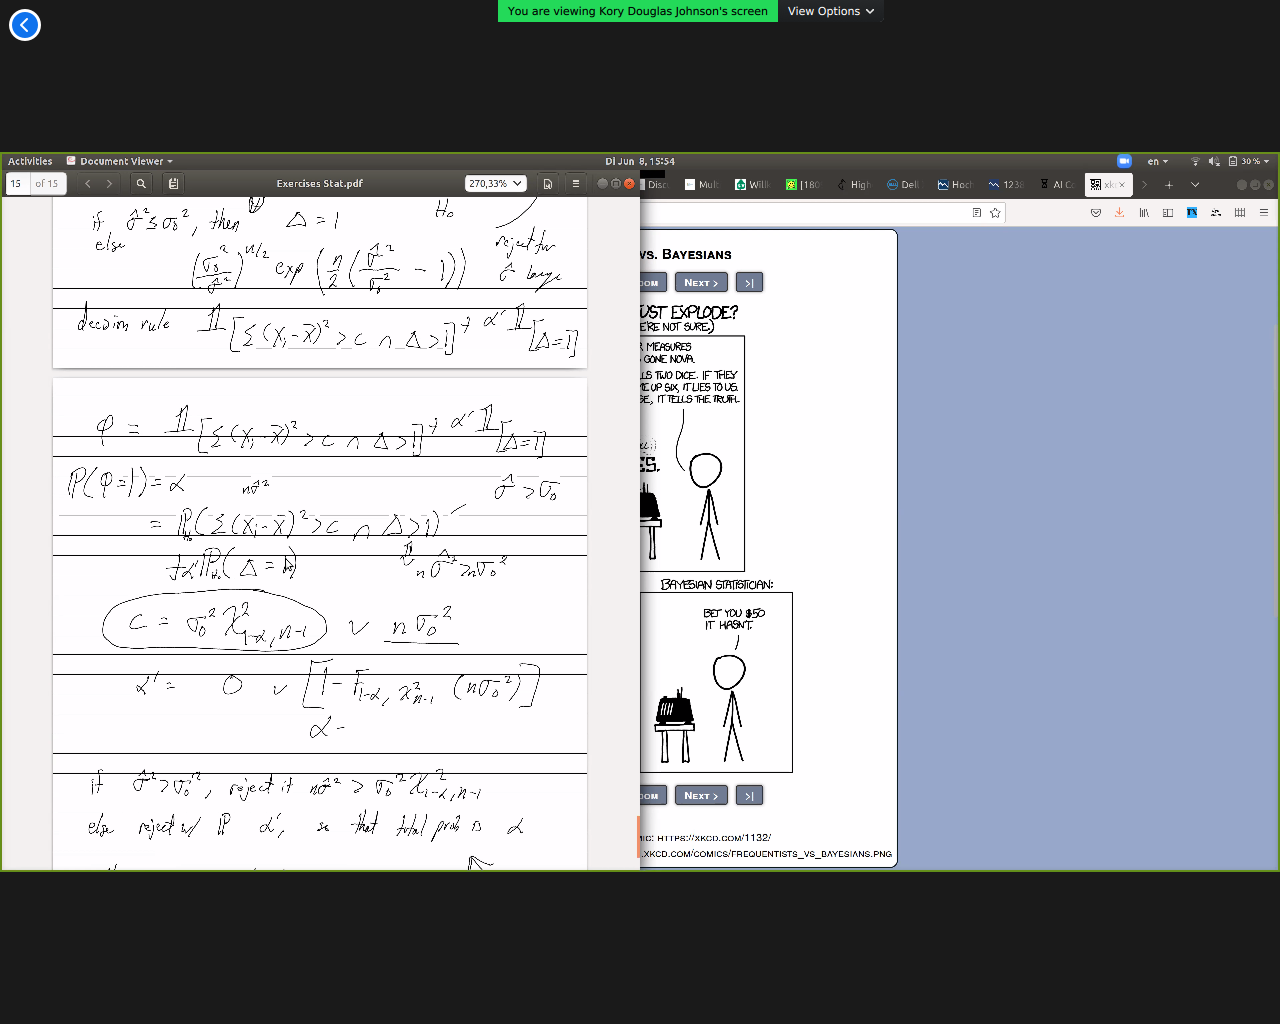 You are viewing Kory Douglas Johnson's screen
View Options
Activities
Document Viewer
Di Jun 8, 15:54
en
30 %
15
of 15
Exercises Stat.pdf
270,33%
Disc
Mult
Willi
[180
High
Dell
Hoch
1238
AI Co
xkc
if σ̂² ≤ σ₀², then Δ = 1
H₀
else
(σ₀²/σ̂²)^{n/2} exp(n/2 (σ̂²/σ₀² - 1))
reject for
σ̂ large
decision rule 𝟙[Σ(Xᵢ-X̄)² > c ∩ Δ>1] + α' 𝟙[Δ=1]
φ = 𝟙[Σ(Xᵢ-X̄)² > c ∩ Δ>1] + α' 𝟙[Δ=1]
ℙ(φ=1) = α
nσ̂²
σ̂ > σ₀
= ℙ_{H₀}(Σ(Xᵢ-X̄)² > c ∩ Δ>1)
+α'ℙ_{H₀}(Δ = 1)
nσ̂² > nσ₀²
c = σ₀² χ²_{1-α, n-1} ∨ nσ₀²
α' = 0 ∨ [1 - F_{1-α, χ²_{n-1}} (nσ₀²)]
α -
if σ̂² > σ₀², reject if nσ̂² > σ₀² χ²_{1-α, n-1}
else reject w/ ℙ α', so that total prob is α
VS. BAYESIANS
DOM
NEXT >
>|
UST EXPLODE?
E'RE NOT SURE.)
R MEASURES
GONE NOVA.
LS TWO DICE. IF THEY
ME UP SIX, IT LIES TO US.
SE, IT TELLS THE TRUTH.
ES.
BAYESIAN STATISTICIAN:
BET YOU $50
IT HASN'T.
DOM
NEXT >
>|
MIC: HTTPS://XKCD.COM/1132/
.XKCD.COM/COMICS/FREQUENTISTS_VS_BAYESIANS.PNG